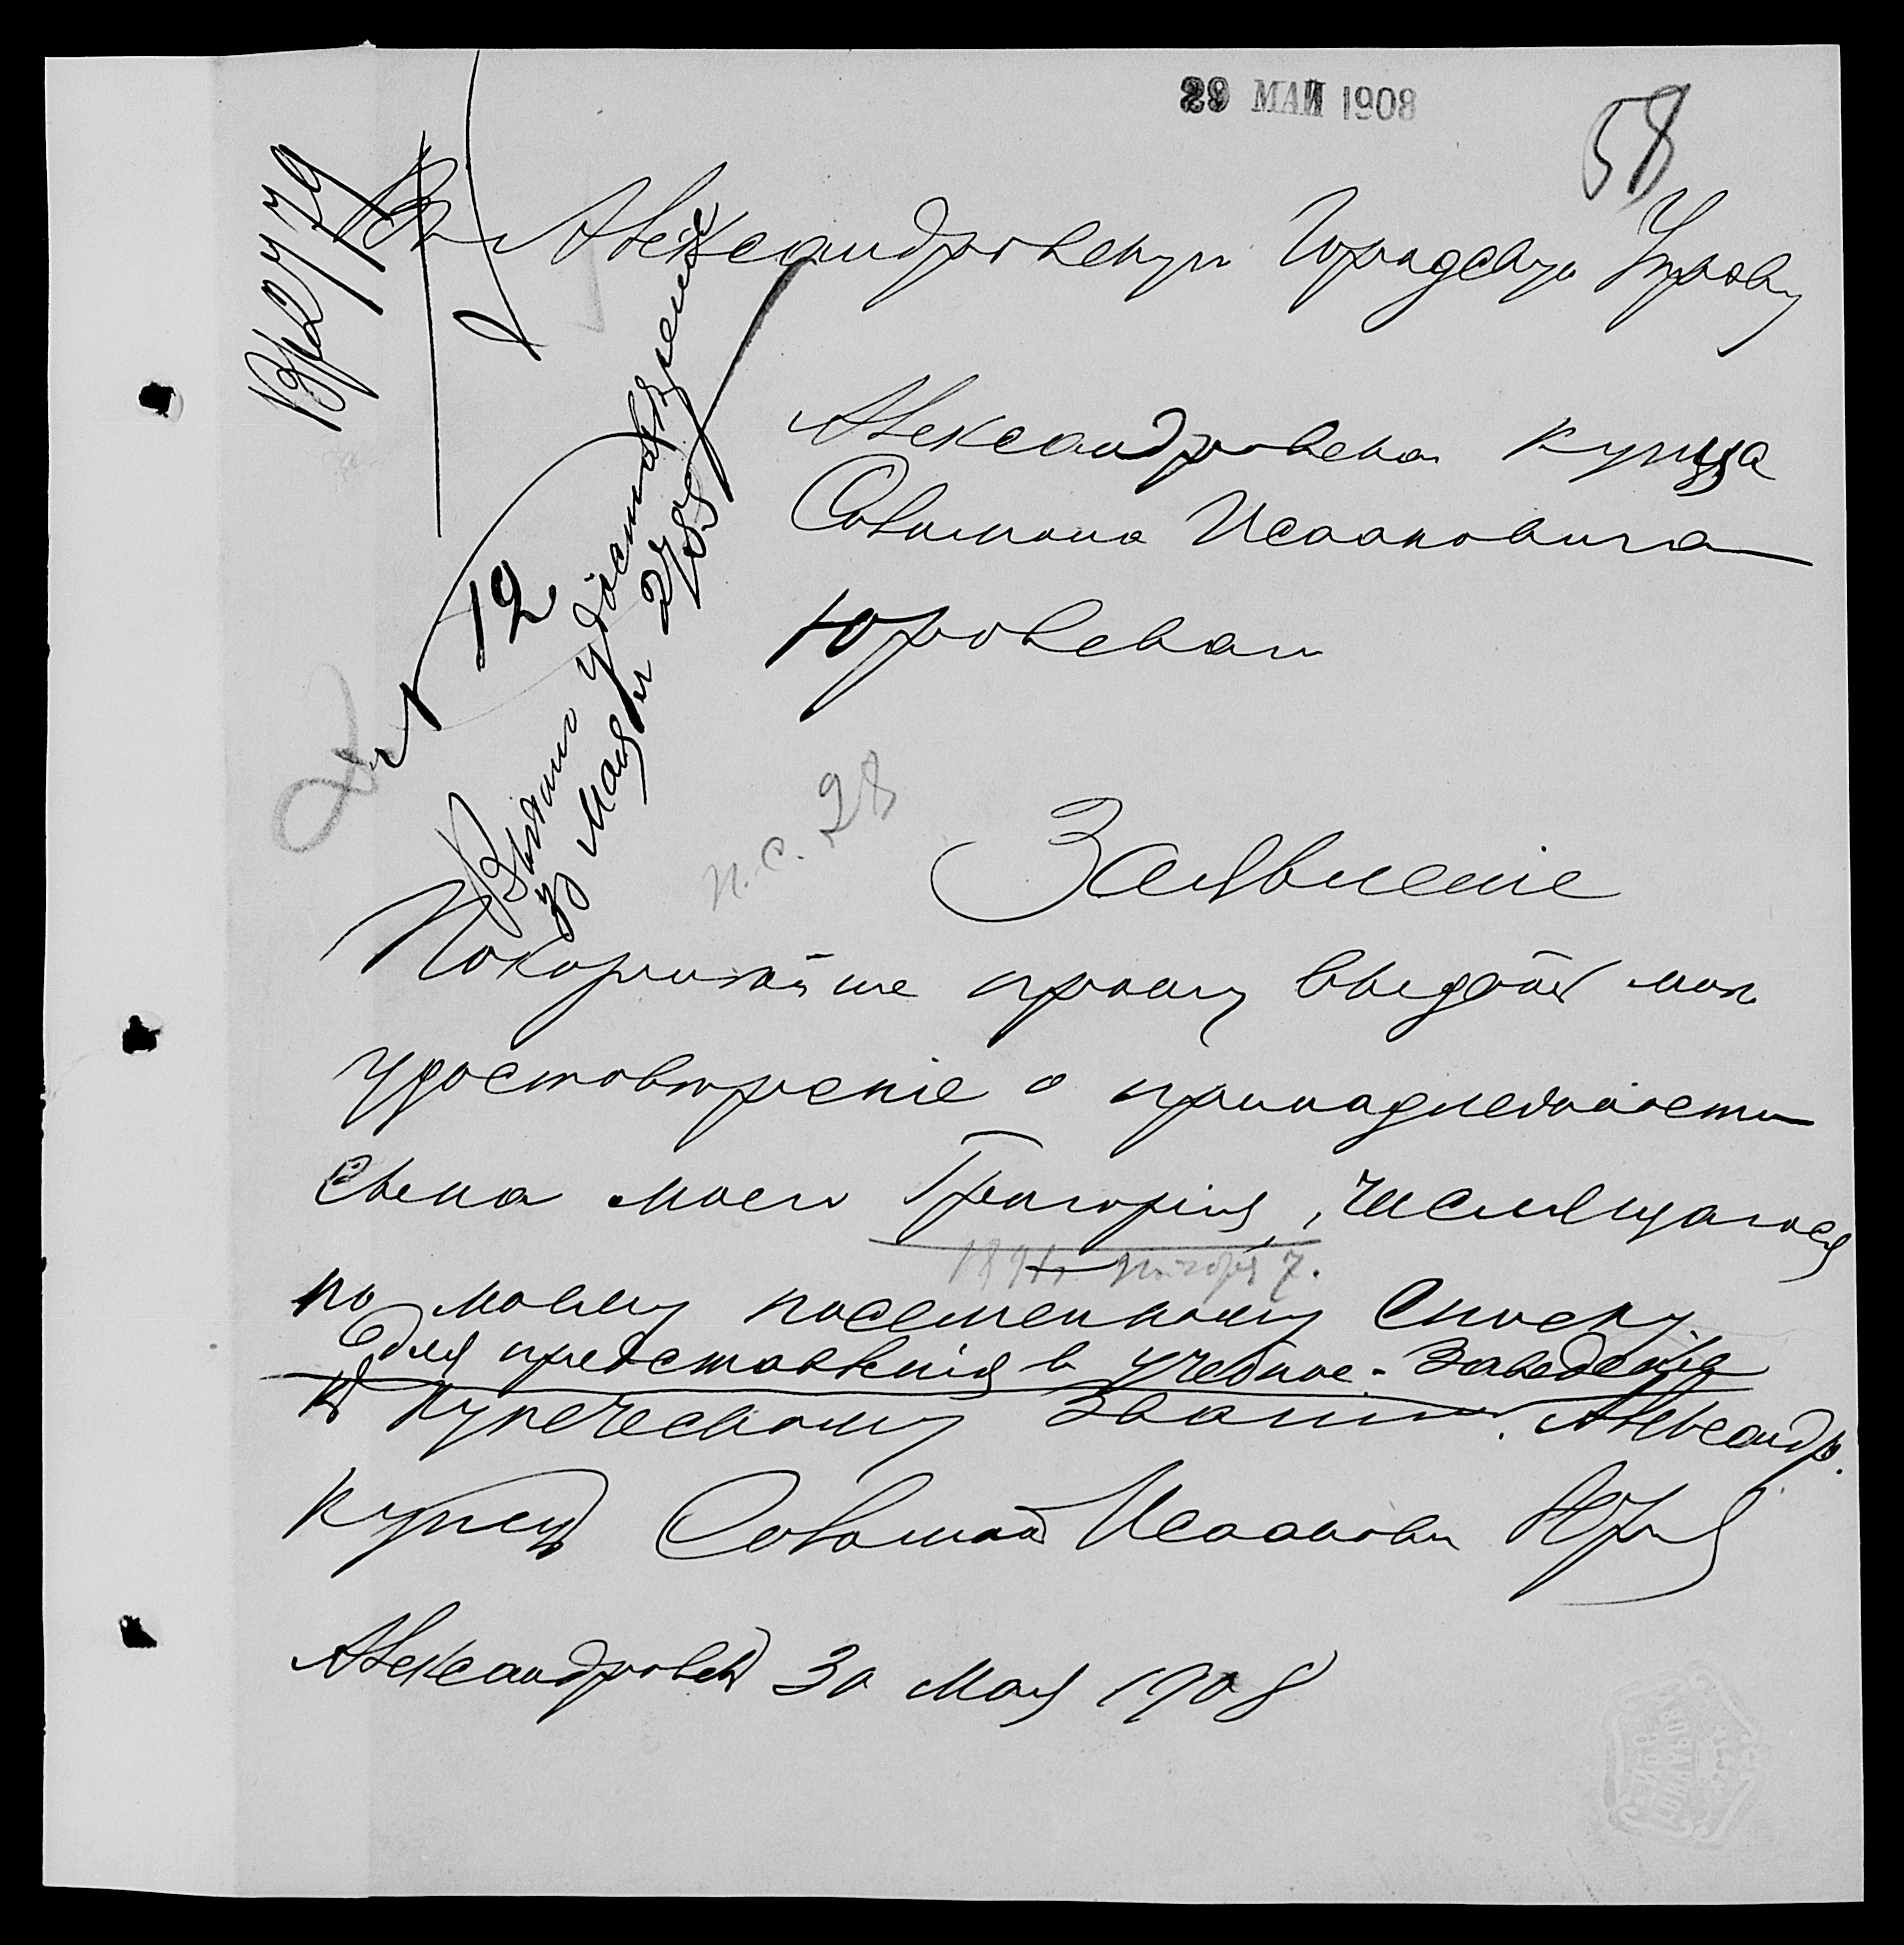 29 МАЙ 1908
58
Въ Александровскую Городскую Управу
Александровскаго купца
Соломона Исааковича
Юровскаго
12
Выдано удостоверение
30 Мая
п. с. 28
Заявленіе
Покорнѣйше прошу выдать мнѣ
удостовѣреніе о принадлежности
сына моего Григорія, числящагося
по моему посемейному списку
для представленія въ учебное заведеніе
къ купеческому званію. Александр.
купецъ Соломонъ Исааковъ
Александровскъ 30 Мая 1908